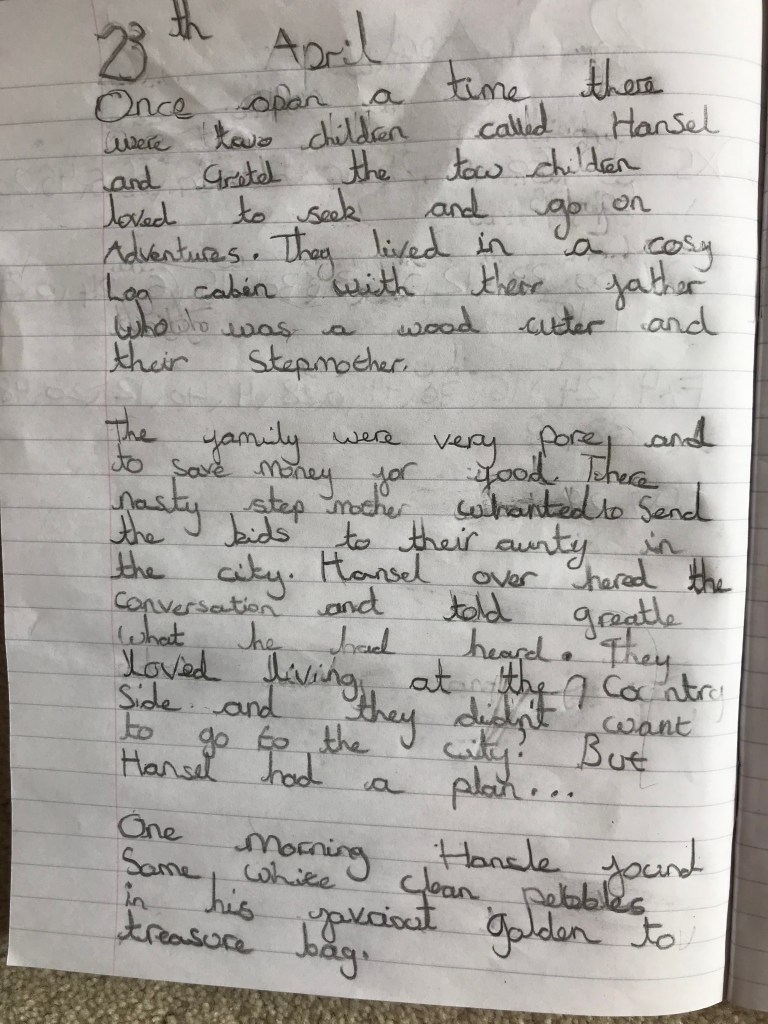 23th April
Once opon a time there
were two children called Hansel
and Gretel the tow children
loved to seek and go on
Adventures. They lived in a cosy
Log cabin with their father
who was a wood cutter and
their Stepmother.
The family were very pore, and
to save money for food. There
nasty step mother whanted to Send
the kids to their aunty in
the city. Hansel over hered the
conversation and told greatle
what he had heard. They
loved living at the Country
Side and they didn't want
to go to the city? But
Hansel had a plan...
One morning Hansle found
Some white clean pebbles
in his golden to
treasure bag.